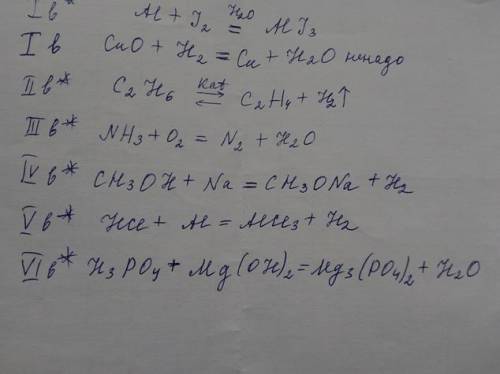 I в* Al + I2 =H2O AlI3
I в CuO + H2 = Cu + H2O ненадо
II в* C2H6 ⇄Kat C2H4 + H2↑
III в* NH3 + O2 = N2 + H2O
IV в* CH3OH + Na = CH3ONa + H2
V в* HCl + Al = AlCl3 + H2
VI в* H3PO4 + Mg(OH)2 = Mg3(PO4)2 + H2O